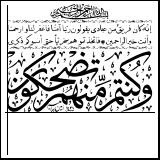 إنه كان فريق من عبادي يقولون ربنا آمنا فاغفر لنا وارحمنا
وأنت خير الراحمين فاتخذتموهم سخريا حتى أنسوكم ذكري
وكنتم منهم تضحكون